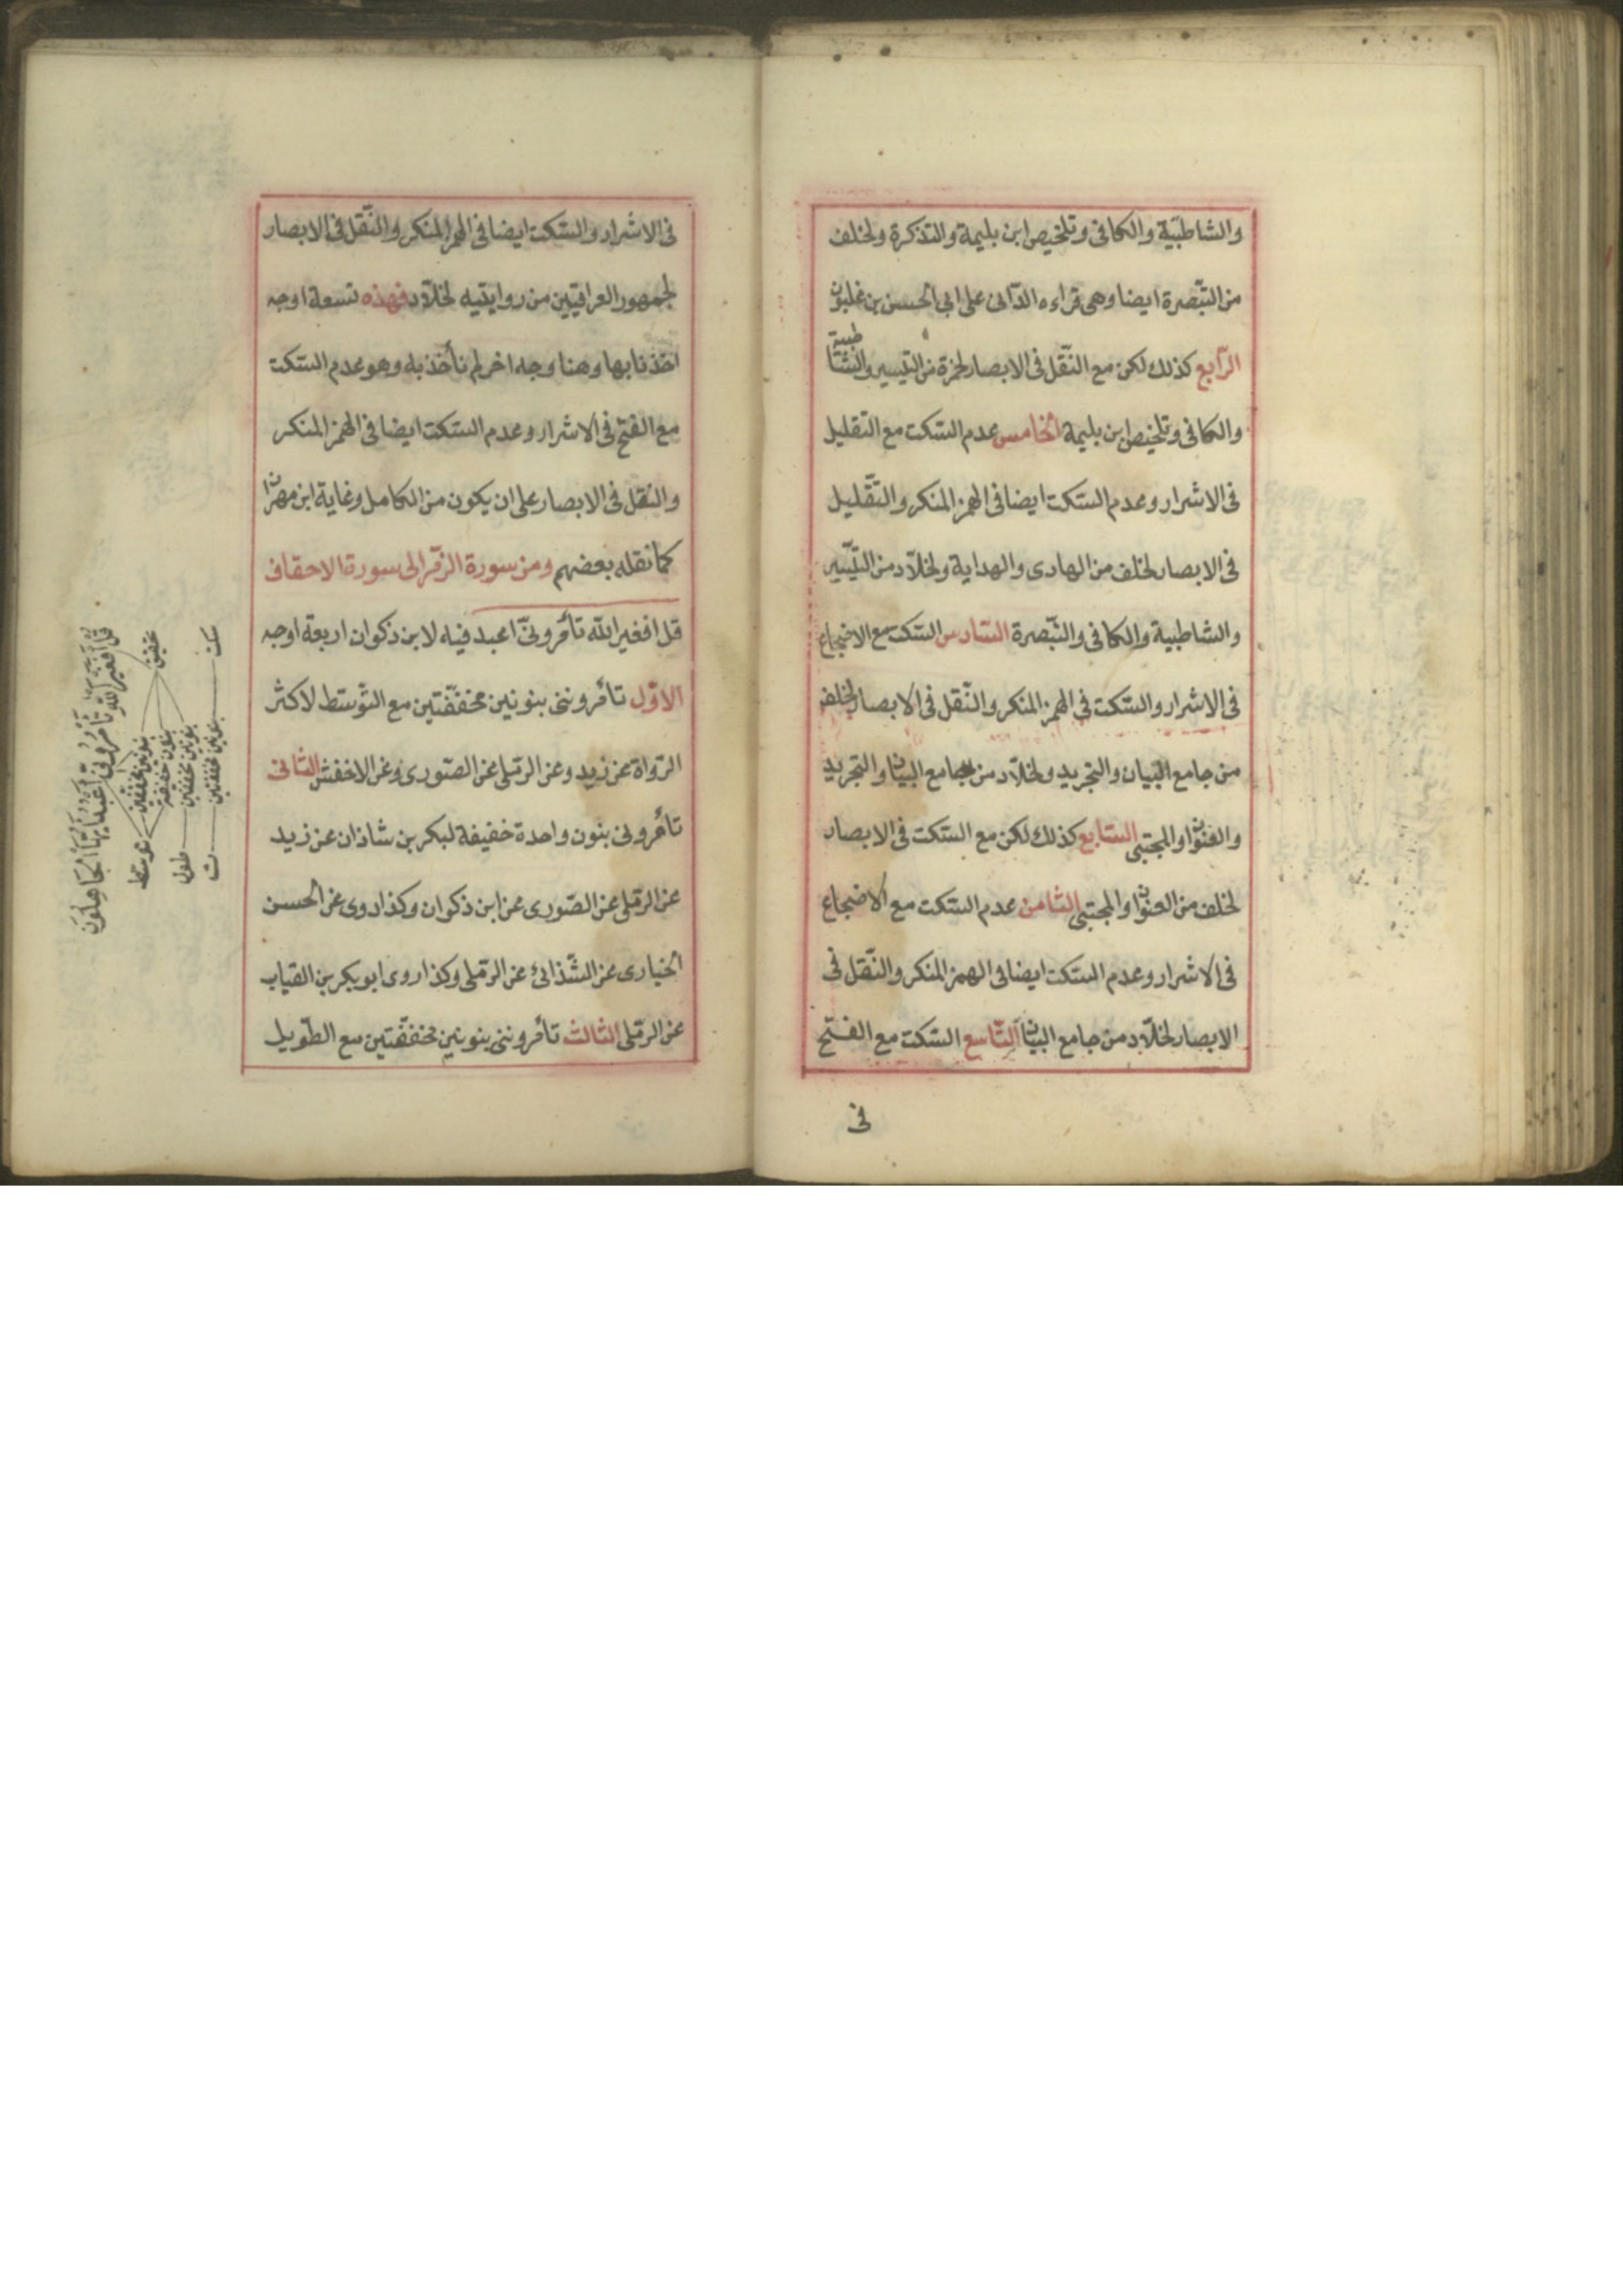 والشاطبية والكافى وتلخيص ابن بليمة والتذكرة ولخلف
من التبصرة ايضا وهى قراءه الدّانى على ابى الحسن بن غلبون
الرّابع كذلك لكن مع النّقل فى الابصار لحمزة من التيسير والشاطبية
والكافى وتلخيص ابن بليمة الخامس عدم السّكت مع التقليل
فى الاشرار وعدم السّكت ايضا فى الهمز المنكر والتّقليل
فى الابصار لخلف من الهادى والهداية ولخلّاد من التّيسير
والشاطبية والكافى والتّبصرة السّادس السّكت مع الاضجاع
فى الاشرار والسّكت فى الهمز المنكر والنّقل فى الابصار لخلف
من جامع البيان والتجريد ولخلّاد من جامع البيان والتجريد
والعنوان والمجتبى السّابع كذلك لكن مع السّكت فى الابصار
لخلف من العنوان والمجتبى الثّامن عدم السّكت مع الاضجاع
فى الاشرار وعدم السّكت ايضا فى الهمز المنكر والنّقل فى
الابصار لخلّاد من جامع البيان التّاسع السّكت مع الفتح
فى
فى الاشرار والسّكت ايضا فى الهمز المنكر والنّقل فى الابصار
لجمهور العراقيّين من روايتيه لخلّاد فهذه تسعة اوجه
اخذنا بها وهنا وجه اخر لم نأخذ به وهو عدم السّكت
مع الفتح فى الاشرار وعدم السّكت ايضا فى الهمز المنكر
والنقل فى الابصار على ان يكون من الكامل وغاية ابن مهران
كما نقله بعضهم ومن سورة الزّمر الى سورة الاحقاف
قل افغير الله تأمرونّى اعبد فيه لابن ذكوان اربعة اوجه
الاوّل تأمروننى بنونين مخفّفتين مع التّوسّط لاكثر
الرّواة عن زيد وعن الرّملى عن الصّورى وعن الاخفش الثانى
تأمرونى بنون واحدة خفيفة لبكر بن شاذان عن زيد
عن الرّملى عن الصّورى عن ابن ذكوان وكذا روى عن الحسن
الخيارى عن الشّذائى عن الرّملى وكذا روى ابو بكر بن القباب
عن الرّملى الثالث تأمروننى بنونين مخفّفتين مع الطّويل
قل أفغير الله تأمرونى أعبد أيها الجاهلون
تحقيق
سكت
بنونين مخففتين
بنون خفيفة
بنونين مخففتين
بنونين مخففتين
توسط
طول
ت